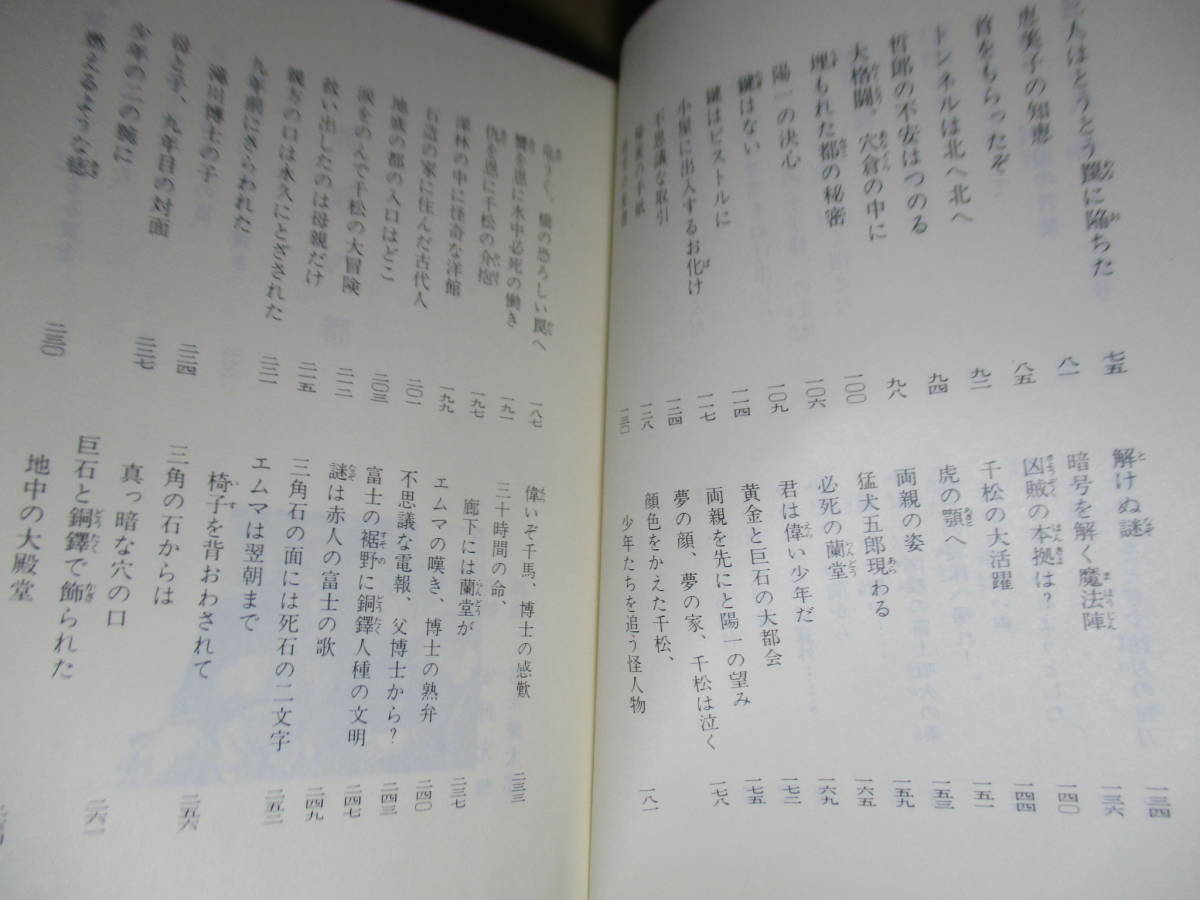 人はとうとう罠に陥ちた 七五
恵美子の知恵 八一
首をもらったぞ 八五
トンネルは北へ北へ 九一
哲郎の不安はつのる 九四
大格闘、穴倉の中に 九八
埋もれた都の秘密 一〇〇
陽一の決心 一〇六
鍵はない 一〇九
鍵はピストルに 一一四
小屋に出入するお化け 一一七
不思議な取引 一二四
の手紙 一二八
一三〇
解けぬ謎 一三四
暗号を解く魔法陣 一三六
凶賊の本拠は? 一四〇
千松の大活躍 一四四
虎の顎へ 一五一
両親の姿 一五三
猛犬五郎現わる 一五九
必死の蘭堂 一六五
君は偉い少年だ 一六九
黄金と巨石の大都会 一七二
両親を先にと陽一の望み 一七五
夢の顔、夢の家、千松は泣く 一七八
顔色をかえた千松、
少年たちを追う怪人物 一八一
く、橋の恐ろしい罠へ 一八七
讐を恩に水中必死の働き 一九一
仇を恩に千松の介抱 一九七
深林の中に怪奇な洋館 一九九
石造の家に住んだ古代人 二〇一
地底の都の入口はどこ 二〇三
涙をのんで千松の大冒険 二一二
救い出したのは母親だけ 二一五
親方の口は永久にとざされた 二二一
九年前にさらわれた
滝川博士の子 二二四
母と子、九年目の対面 二二七
少年の二の腕に
燃えるような痣 二三〇
偉いぞ千馬、博士の感歎 二三三
三十時間の命、
廊下には蘭堂が 二三七
エムマの嘆き、博士の熟弁 二四〇
不思議な電報、父博士から? 二四三
富士の裾野に銅鐸人種の文明 二四七
謎は赤人の富士の歌 二四九
三角石の面には死石の二文字 二五二
エムマは翌朝まで
椅子を背おわされて 二五六
三角の石からは
真っ暗な穴の口 二六一
巨石と銅鐸で飾られた
地中の大殿堂